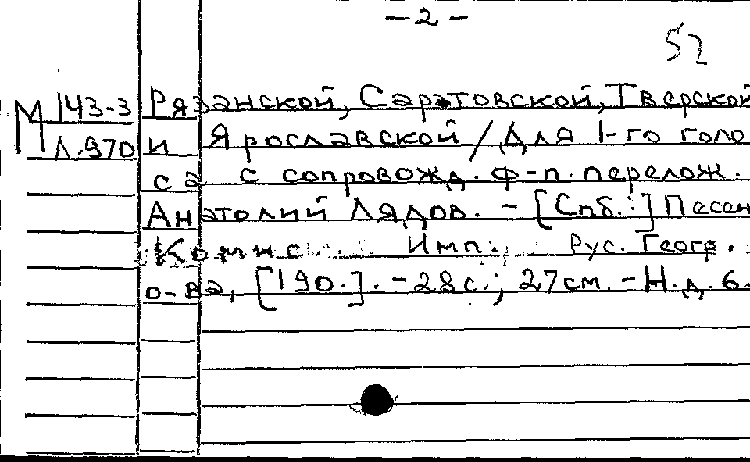 - 2 -
52
М 143-3 Рязанской, Саратовской, Тверской
Л.970 и Ярославской / Для 1-го голо
са с сопровожд. ф-п. перелож.
Анатолий Лядов. - [Спб.:] Песен
Комис. Имп. Рус. Геогр.
о-ва, [190.]. - 28с.; 27см. - Н.д. 6.